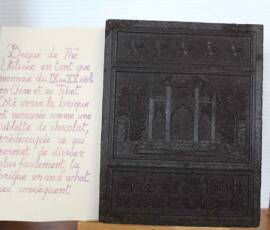 Brique de Thé
Utilisée en tant que
monnaie du IX au XX siècle
en Chine et au Tibet.
Côté verso la brique
est nervurée comme une
tablette de chocolat,
prédécoupée ce qui
permet de diviser
plus facilement la
brique en cas d'achat
peu conséquent.